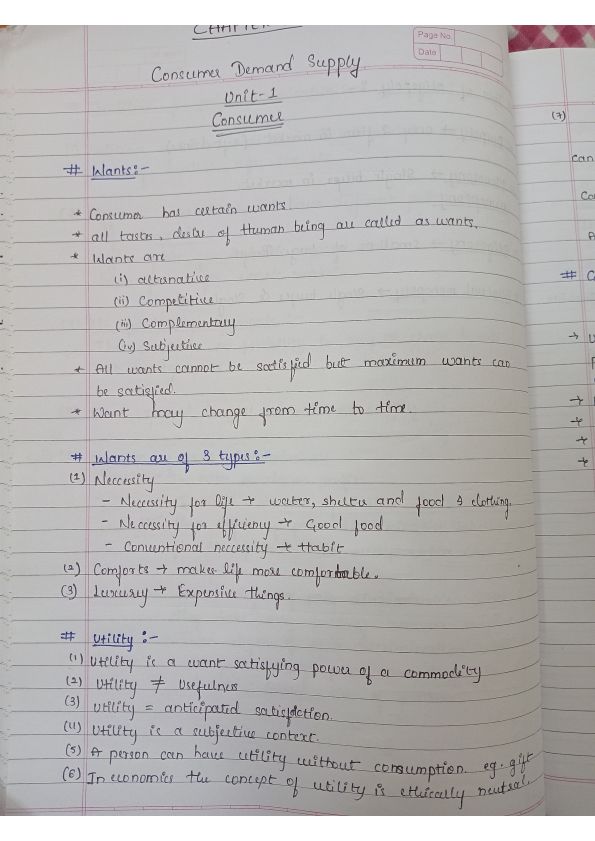 CHAPTER
Page No.
Date
Consumer Demand Supply
Unit-1
Consumer
# Wants:-
* Consumer has certain wants.
* all tastes, desire of Human being are called as wants.
* Wants are
(i) alternative
(ii) Competitive
(iii) Complementary
(iv) Subjective
* All wants cannot be satisfied but maximum wants can
be satisfied.
* Want may change from time to time.
# Wants are of 3 types:-
(1) Neccessity
- Neccessity for life → water, shelter and food & clothing.
- Neccessity for efficiency → Good food
- Conventional neccessity → Habit
(2) Comforts → makes life more comfortable.
(3) Luxury → Expensive things.
# Utility :-
(1) Utility is a want satisfying power of a commodity
(2) Utility ≠ Usefulness
(3) Utility = anticipated satisfaction.
(4) Utility is a subjective context.
(5) A person can have utility without consumption. eg. gift
(6) In economics the concept of utility is ethically neutral.
(7)
Can
Co
A
# C
→
→
→
→
→